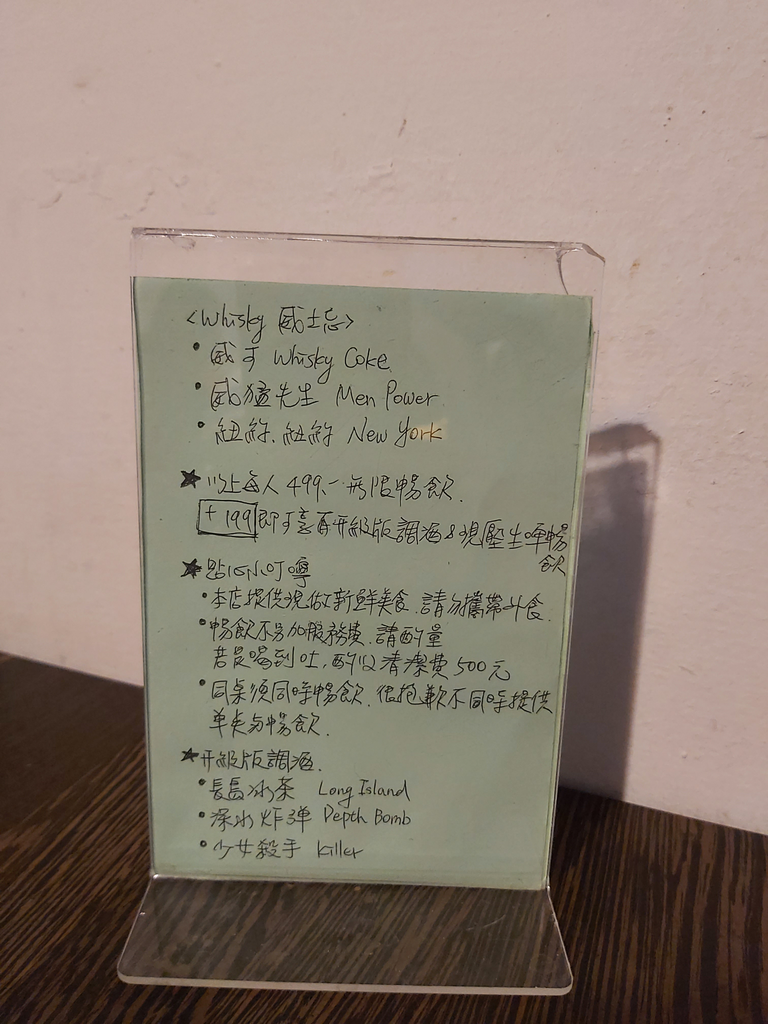 <Whisky 威士忌>
• 威可 Whisky Coke
• 威猛先生 Men Power
• 紐約.紐約 New York
★ 以上每人499.- 無限暢飲.
+199 即可享再升級版調酒&現壓生啤暢
飲
★ 貼心小叮嚀
• 本店提供現做新鮮美食.請勿攜帶外食.
• 暢飲不另加服務費.請酌量
若是喝到吐,酌收清潔費500元
• 同桌須同時暢飲.很抱歉不同時提供
單點与暢飲.
★ 升級版調酒.
• 長島冰茶 Long Island
• 深水炸弹 Depth Bomb
• 少女殺手 Killer